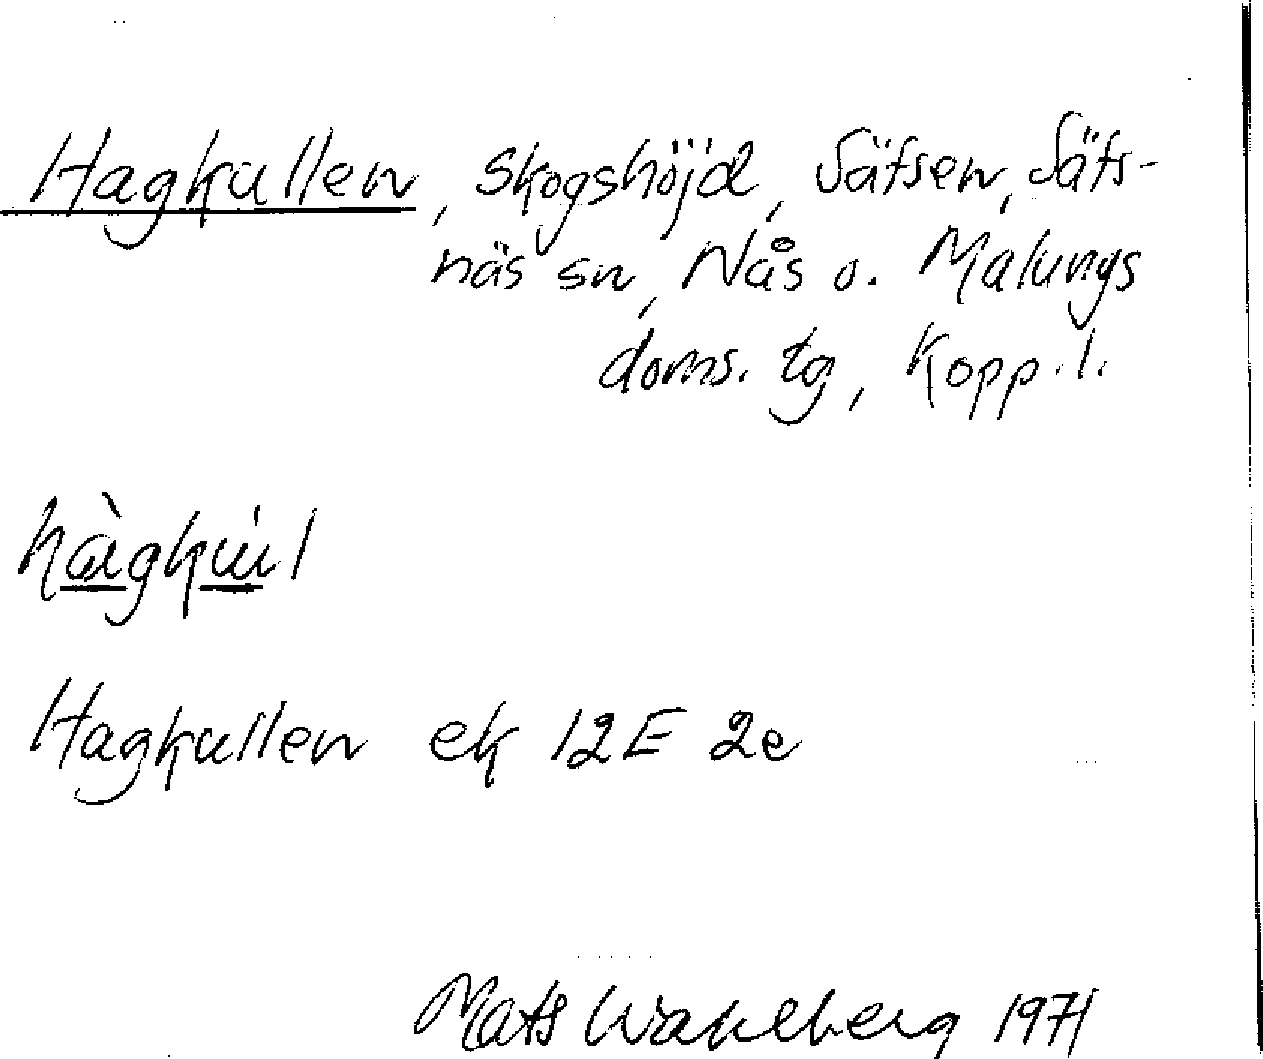 Hagkullen, skogshöjd, Säfsen, Säfs-
näs sn, Nås o. Malungs
doms. tg, Kopp. l.
hàgkúl
Hagkullen ek 12E 2e
Mats Wahlberg 1971